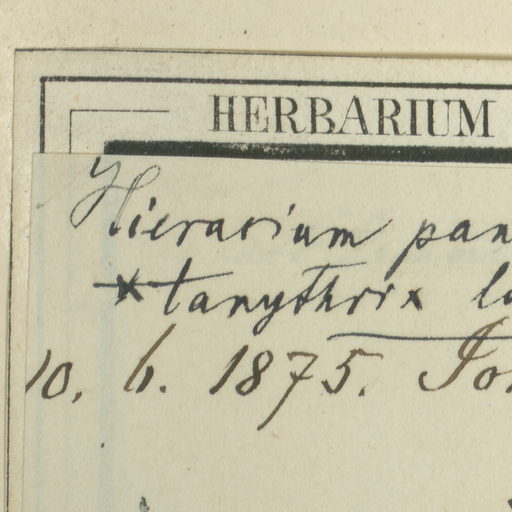 HERBARIUM
Hieracium pan
* tanythrix
10. 6. 1875.